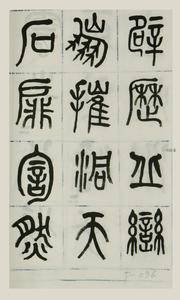 辟歷丘巒
崩摧洞天
石扉訇然